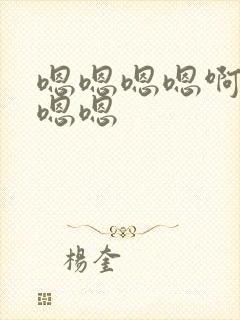 嗯嗯嗯嗯啊
嗯嗯
楊奎